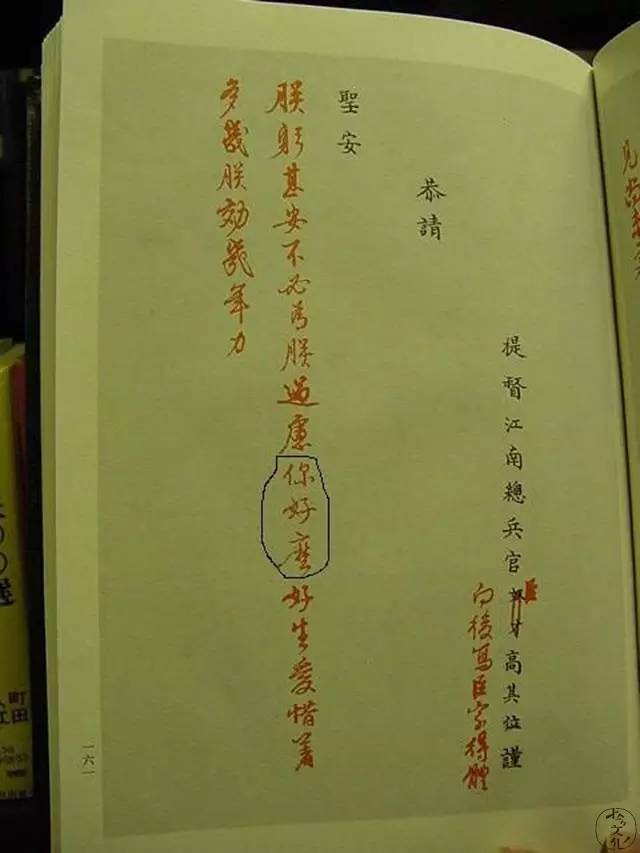 提督江南總兵官奴才高其位謹
臣
向後寫臣字得體
恭請
聖安
朕躬甚安不必為朕過慮你好麼好生愛惜著
多幾朕効幾年力
一六一
町田